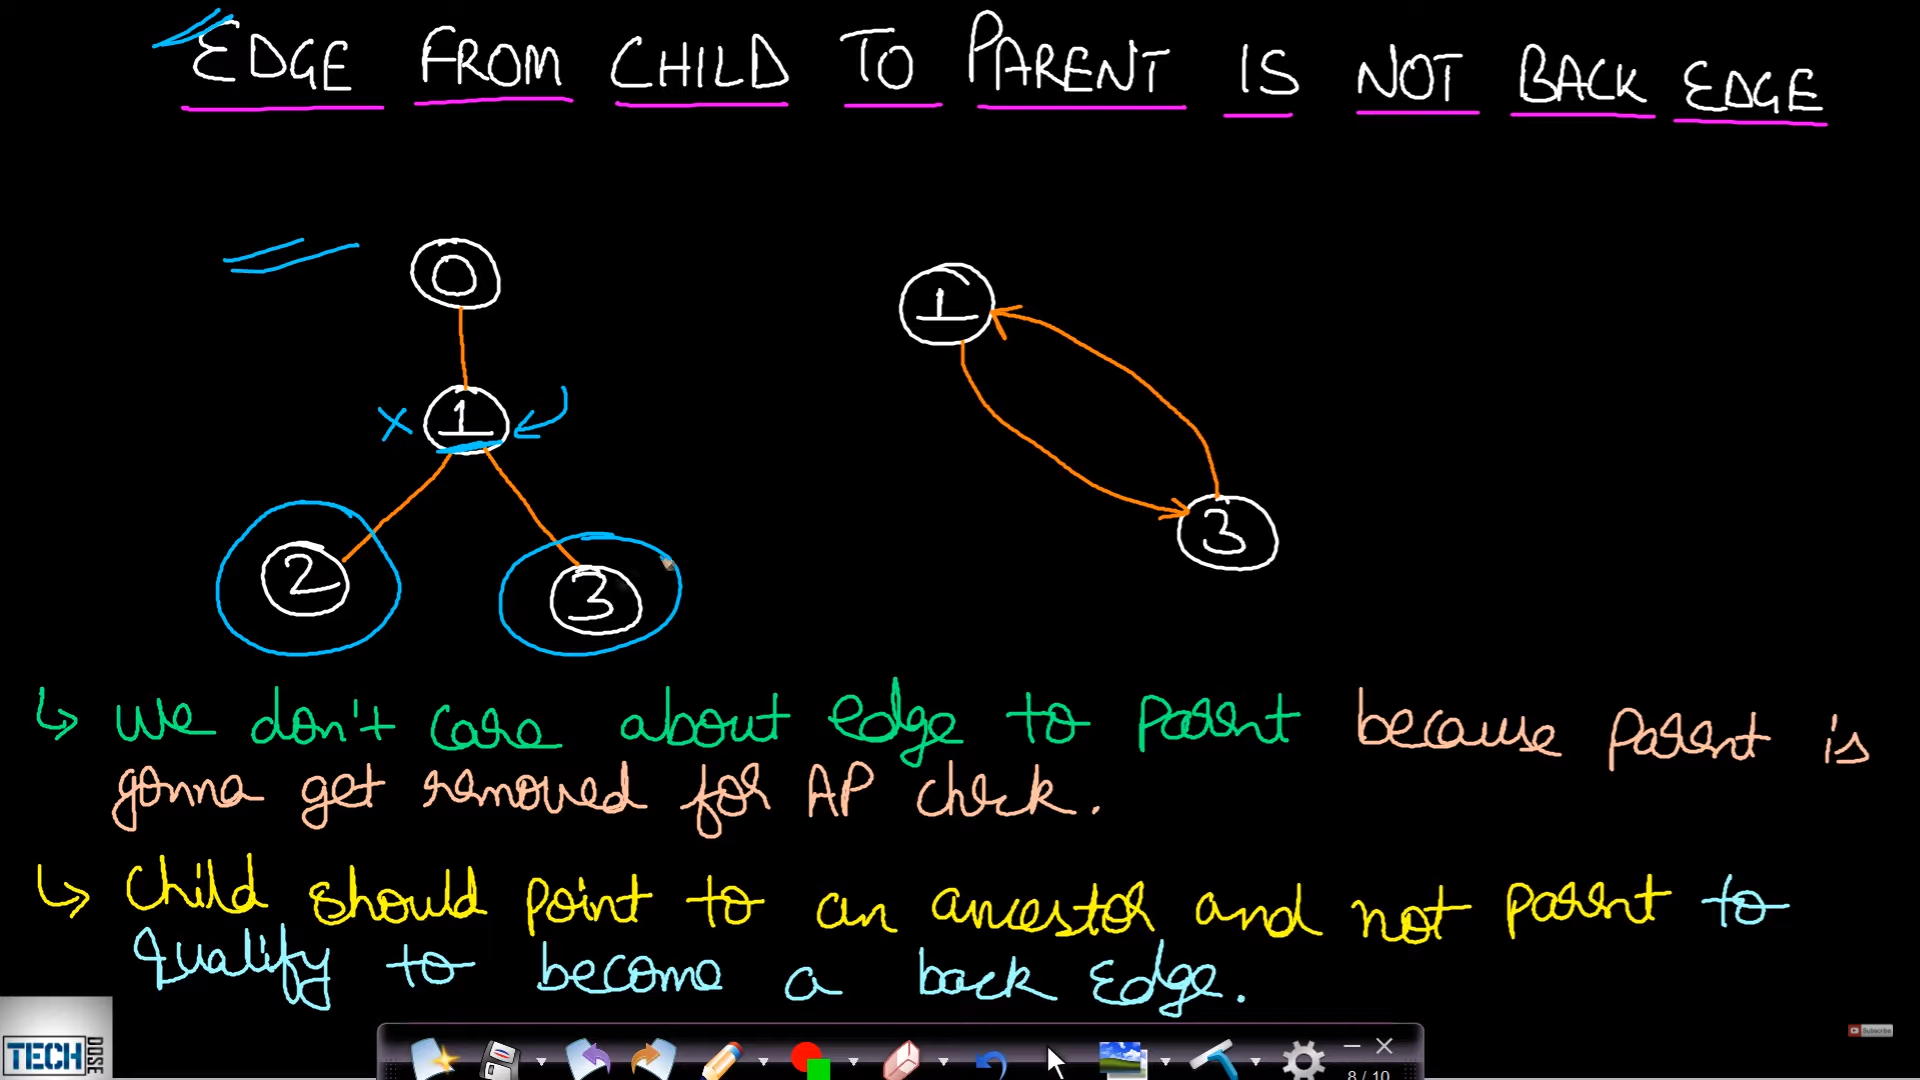 EDGE FROM CHILD TO PARENT IS NOT BACK EDGE
0
1
1
X
2
3
3
↳ we don't care about edge to parent because parent is
gonna get removed for AP check.
↳ child should point to an ancestor and not parent to
qualify to become a back edge.
TECH DOSE
Subscribe
8 / 10